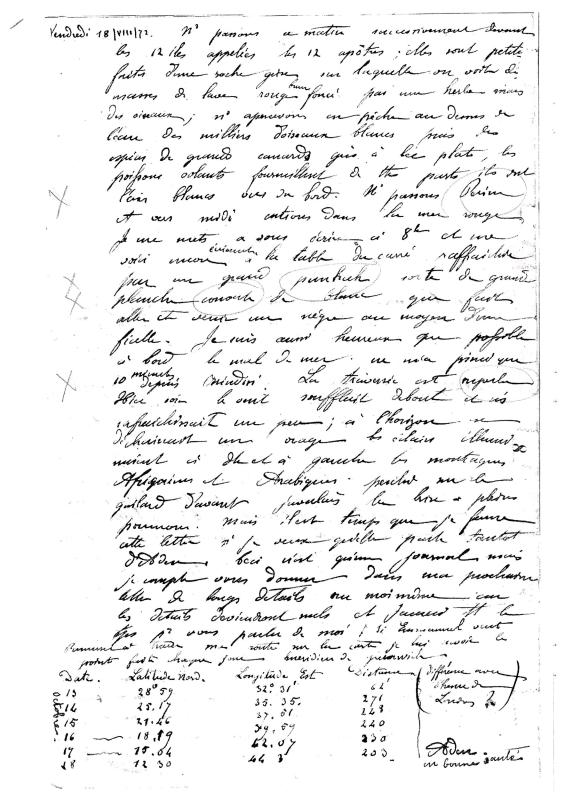 Vendredi 18/VIII/72. Ns passons ce matin successivement devant
les 12 iles appelées les 12 apôtres ; elles sont petites
faites d'une roche grise sur laquelle on voit de
masses de lave rouge brun foncé par une herbe mais
des oiseaux ; ns apercevons en pêche au dessus de
l'eau des milliers d'oiseaux blancs puis des
espèces de grands canards gris à bec plats, les
poissons volants fourmillent de tte part ils ont
l'air blancs vus du bord. Ns passons
et vers midi entrons dans la mer rouge
Je me mets à vous écrire à 8h et me
voici encore à la table du carré
par un grand punkah sorte de grande
planche de que fait
aller et venir un nègre au moyen d'une
ficelle. Je suis aussi heureux que possible
à bord le mal de mer ne m'a pris que
10 minutes depuis Brindisi. La traversée est superbe
Hier soir le vent soufflait debout et
rafraichissait un peu ; à l'horizon se
déchainait un orage les éclairs illumi-
naient à dte et à gauche les montagnes
Africaines et Arabiques. sur le
gaillard d'avant j'avalais la brise à pleins
poumons. mais il est temps que je ferme
cette lettre si je veux qu'elle parte tantôt
d'Aden. Ceci n'est qu'un journal mais
je compte vous donner dans ma prochaine
lettre de longs détails sur moi même car
les détails deviendront nuls et j'aurai tt le
tps pr vous parler de moi ! Si Emmanuel veut
s'amuser à tracer ma route sur la carte je lui envoie le
point fait chaque jour
Date. Latitude Nord. Longitude Est Distance (différence avec
13 28° 59 32° 31' 62 l'heure de
14 25.17 35.35. 271 Londres
15 21.46 37.51 248
16 — 18.19 39.59 240
17 — 15.04 42.07 230
18 12 30 44 3 203.
Octobre.
Aden.
en bonne santé